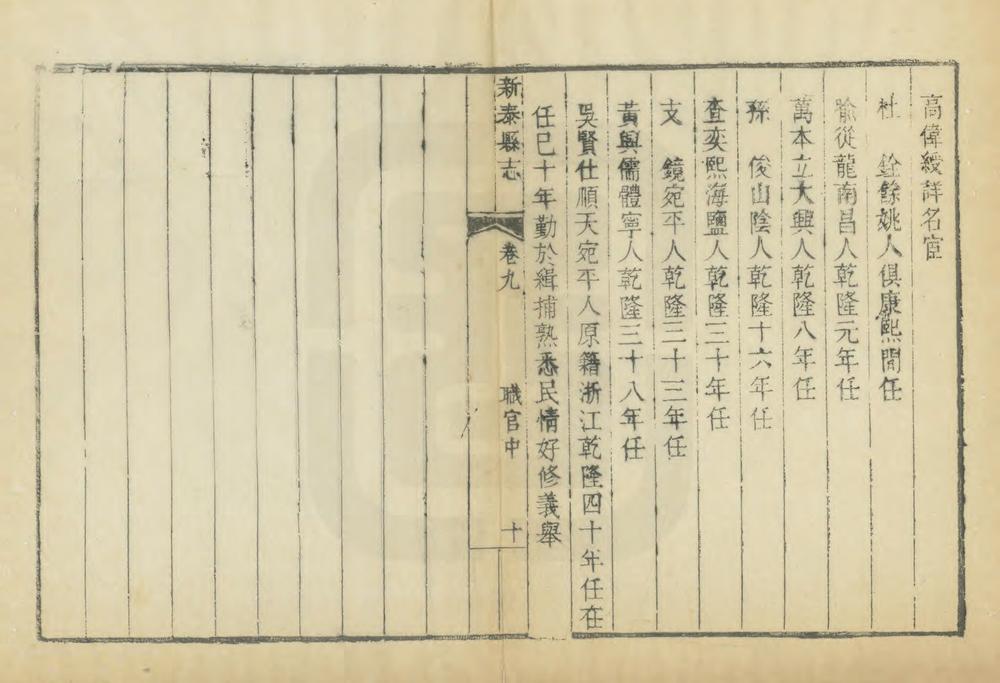 高偉綬詳名宦
杜　銓餘姚人俱康熙間任
喻從龍南昌人乾隆元年任
萬本立大興人乾隆八年任
孫　俊山陰人乾隆十六年任
查奕熙海鹽人乾隆三十年任
支　鏡宛平人乾隆三十三年任
黃輿儒體寧人乾隆三十八年任
吳賢仕順天宛平人原籍浙江乾隆四十年任在
任已十年勤於緝捕熟悉民情好修義舉
新泰縣志　卷九　職官中　十